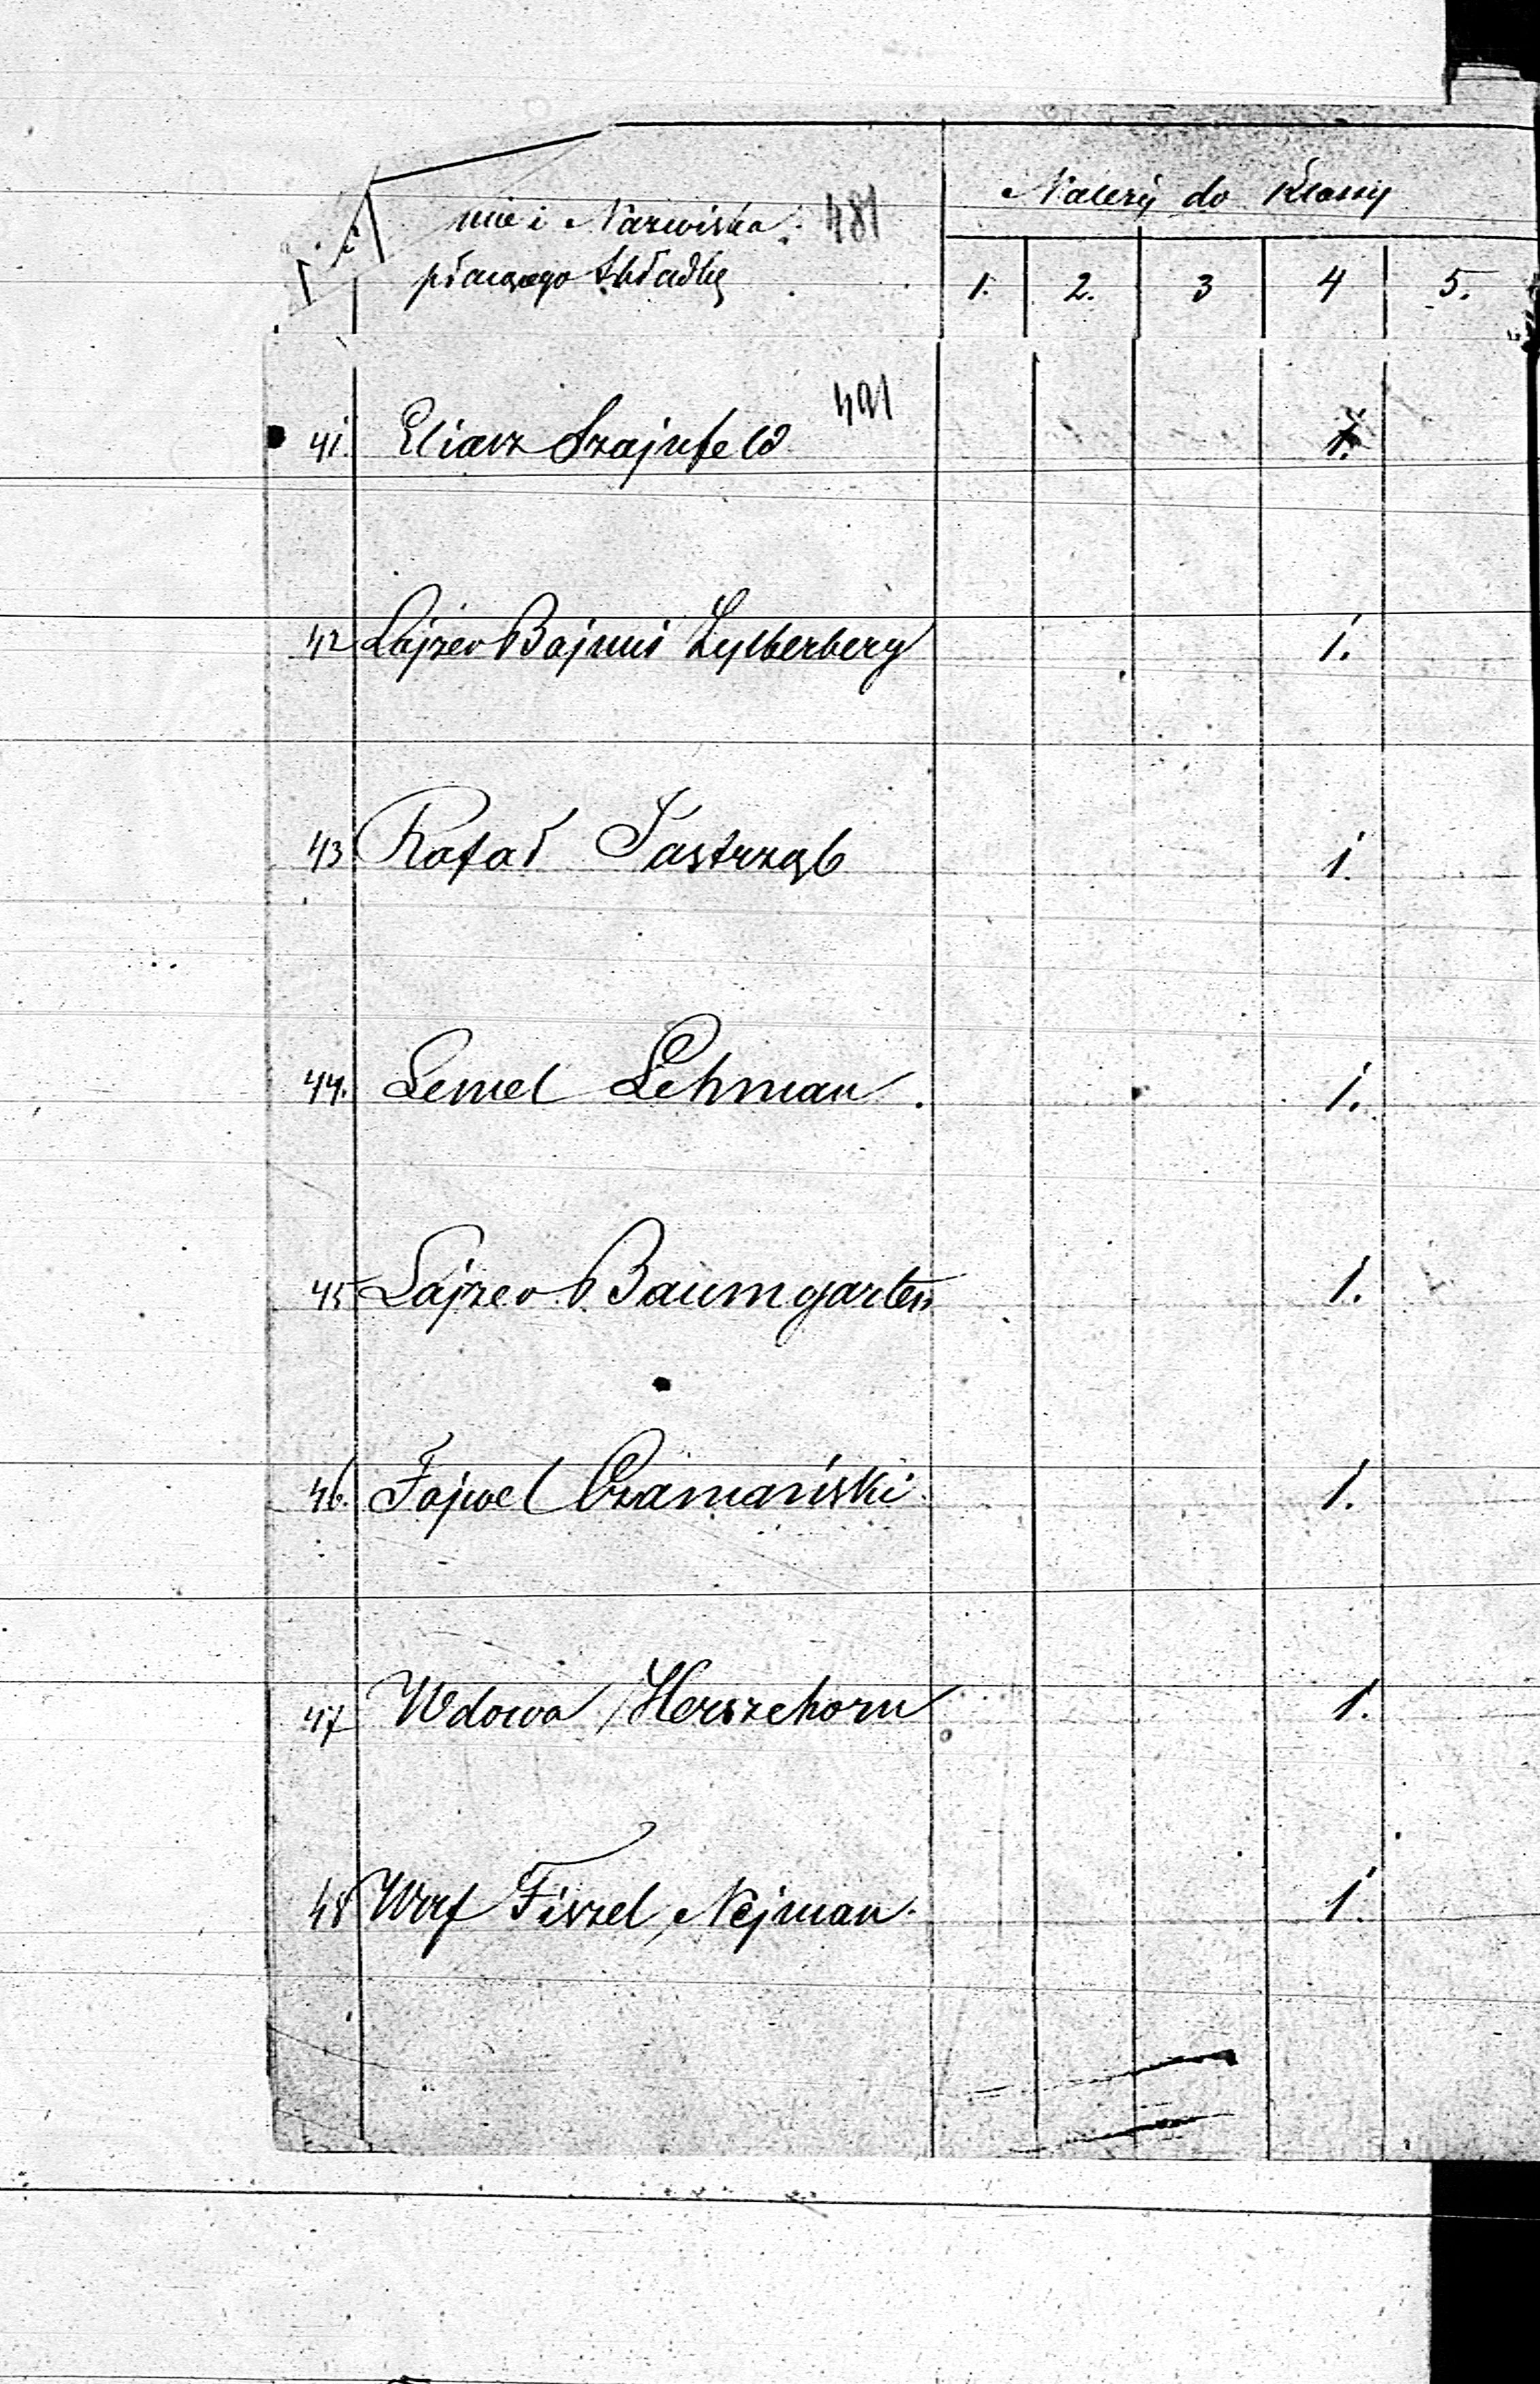 Należy do Klassy
mie i Nazwiska 481
płacącego składkę
1. 2. 3 4 5.
491
41. Eliasz Szajnfeld 1.
42 Lajzer Bajnus Zylberberg 1.
43 Rafał Jastrząb 1.
44. Lemel Lehman. 1.
45 Lajzer Baumgarten 1.
46. Fajwel Czamański. 1.
47 Wdowa Herszehorn 1.
48 Wolf Fiszel Nejman. 1.